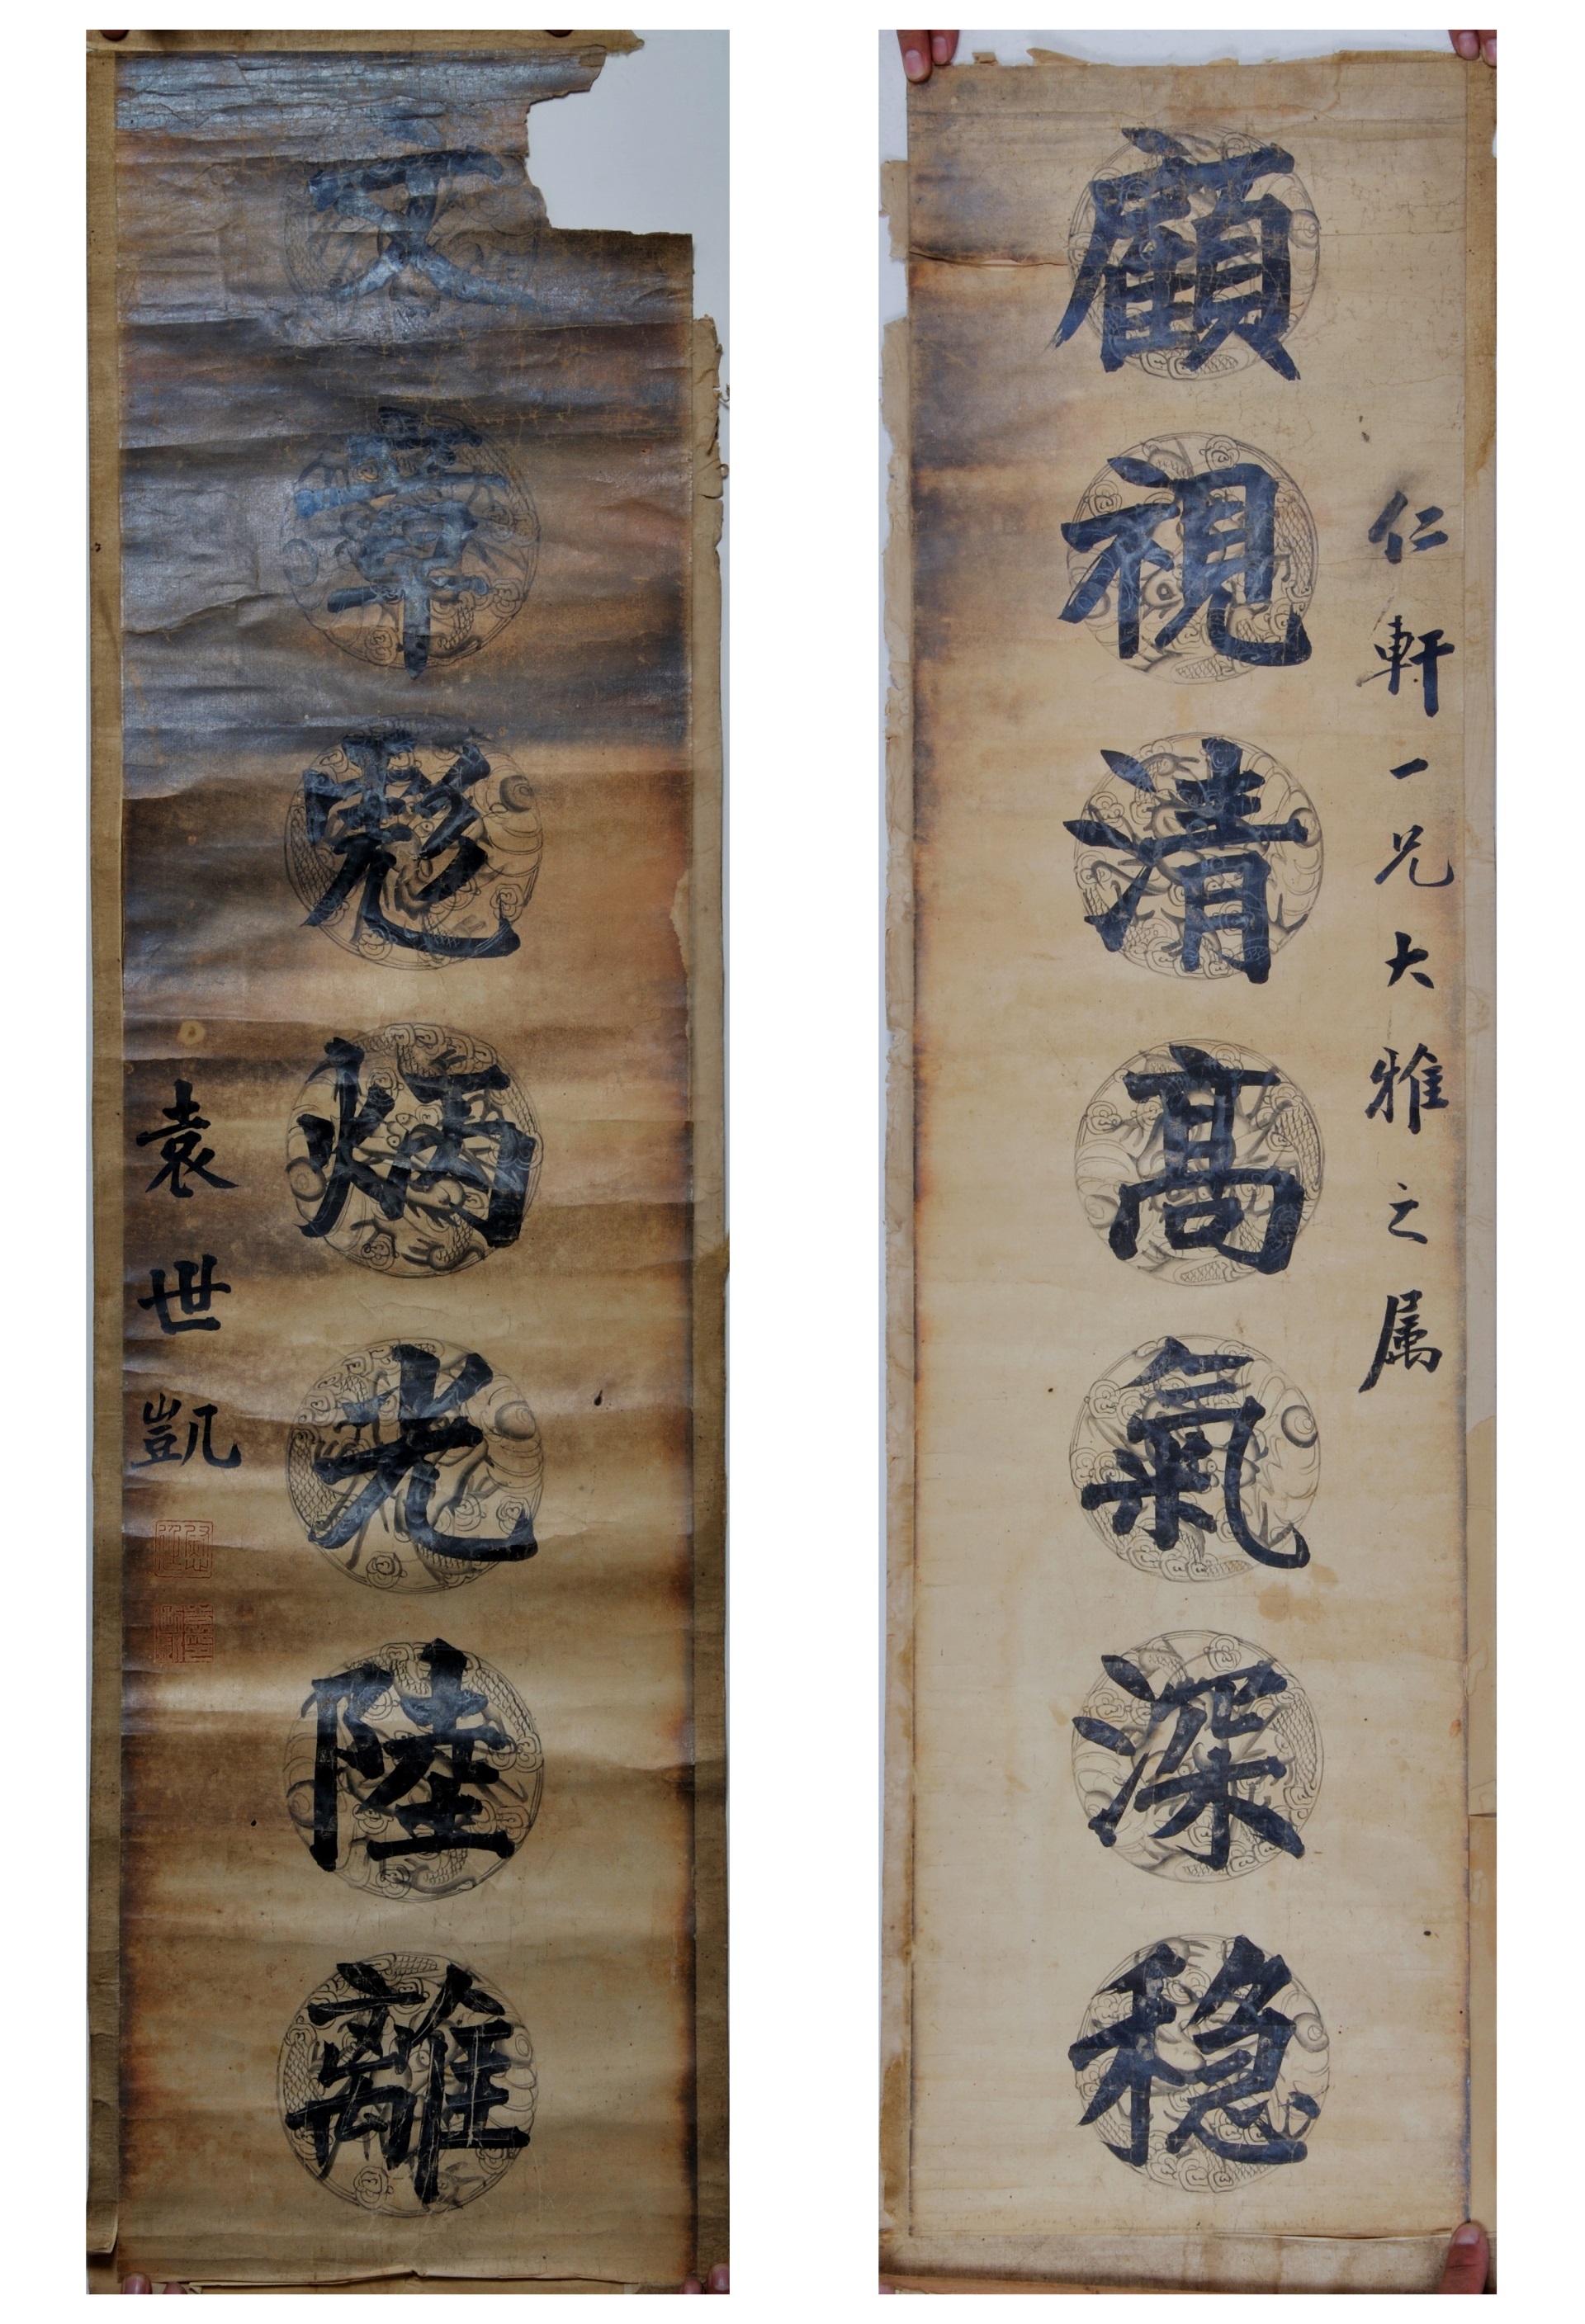 仁軒一兄大雅之属
顧視清高氣深穩
文章彪炳光陸離
袁世凱